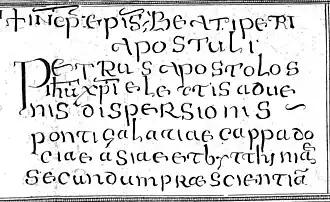 ✝ INCP̄ EPIS̄; BEATI PETRI
APOSTULI
PETRUS APOSTOLOS
IHŪ XPĪ ELECTIS ADUE
NIS DISPERSIONIS
PONTI GALACIAE CAPPADO
CIAE ASIAE ET BYTTHYNIAE
SECUNDUM PRAESCIENTIĀ